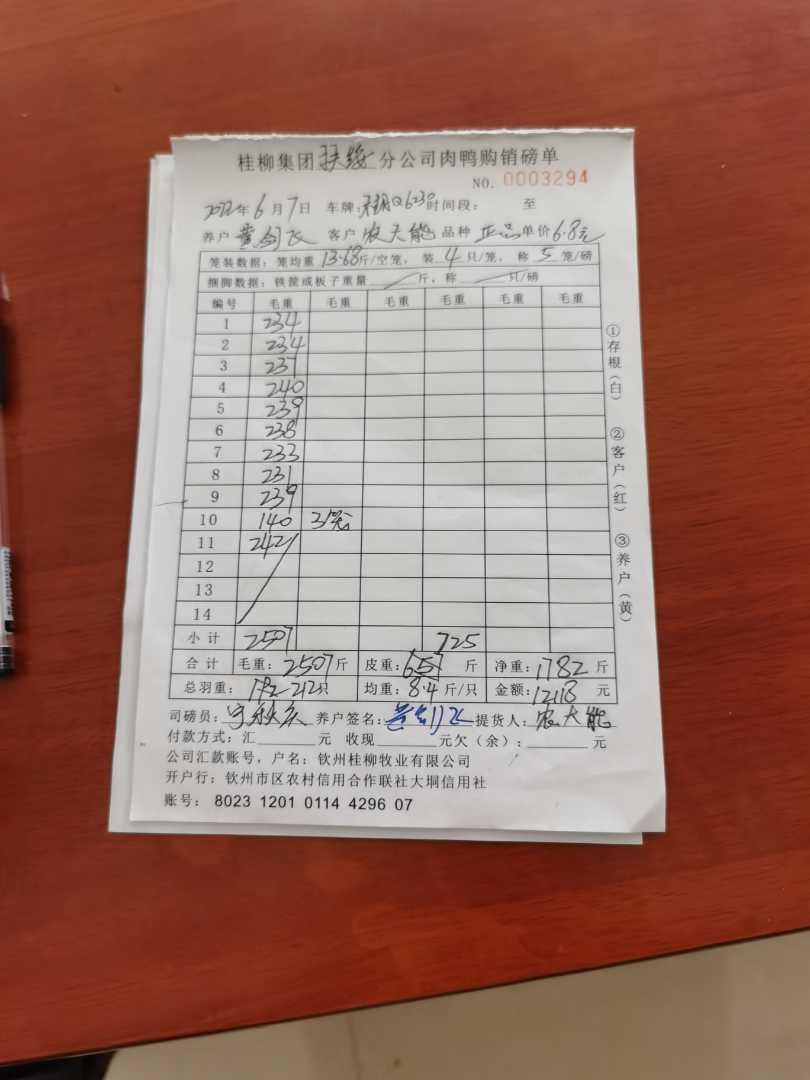 桂柳集团扶绥分公司肉鸭购销磅单
NO. 0003294
2022年6月7日 车牌: Q6230 时间段: 至
养户 黄剑飞 客户 农天能 品种 正品 单价 6.8元
笼装数据: 笼均重 13.68斤/空笼, 装 4 只/笼, 称 5 笼/磅
捆脚数据: 铁筐或板子重量 斤, 称 只/磅
编号 毛重 毛重 毛重 毛重 毛重 毛重
1 234
2 234
3 237
4 240
5 239
6 238
7 233
8 231
9 239
10 140 3笼
11 242
12
13
14
小计 2507 725
合计 毛重: 2507斤 皮重: 657 斤 净重: 1782 斤
总羽重: 212只 均重: 8.4斤/只 金额: 12118 元
司磅员: 养户签名: 黄剑飞 提货人: 农天能
付款方式: 汇 元 收现 元欠(余): 元
公司汇款账号, 户名: 钦州桂柳牧业有限公司
开户行: 钦州市区农村信用合作联社大垌信用社
账号: 8023 1201 0114 4296 07
①存根(白)
②客户(红)
③养户(黄)